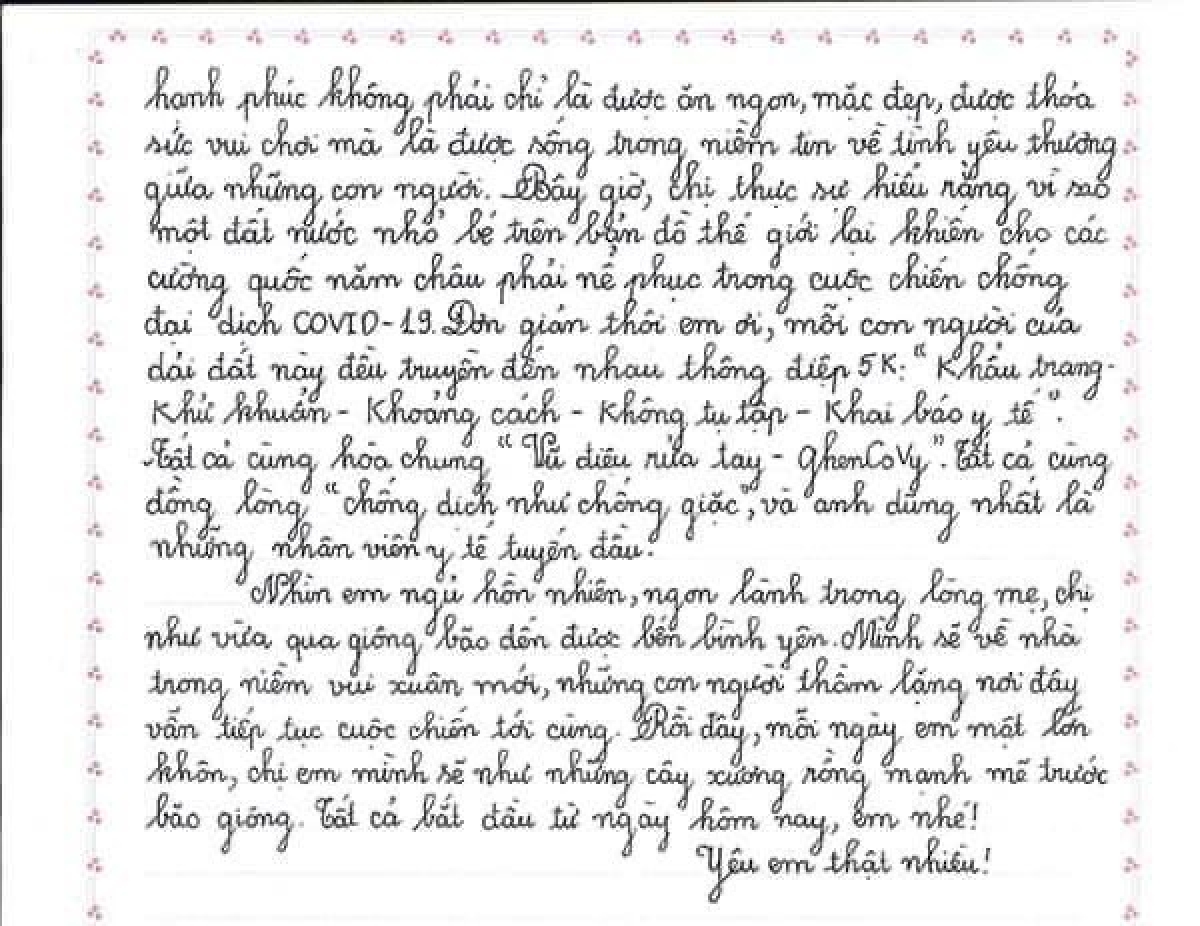 hạnh phúc không phải chỉ là được ăn ngon, mặc đẹp, được thỏa
sức vui chơi mà là được sống trong niềm tin về tình yêu thương
giữa những con người. Bây giờ, chị thực sự hiểu rằng vì sao
một đất nước nhỏ bé trên bản đồ thế giới lại khiến cho các
cường quốc năm châu phải nể phục trong cuộc chiến chống
đại dịch COVID-19. Đơn giản thôi em ơi, mỗi con người của
dải đất này đều truyền đến nhau thông điệp 5K: "Khẩu trang-
Khử khuẩn - Khoảng cách - Không tụ tập - Khai báo y tế".
Tất cả cùng hòa chung "Vũ điệu rửa tay - GhenCoVy". Tất cả cùng
đồng lòng "chống dịch như chống giặc", và anh dũng nhất là
những nhân viên y tế tuyến đầu.
Nhìn em ngủ hồn nhiên, ngon lành trong lòng mẹ, chị
như vừa qua giông bão đến được bến bình yên. Mình sẽ về nhà
trong niềm vui xuân mới, những con người thầm lặng nơi đây
vẫn tiếp tục cuộc chiến tới cùng. Rồi đây, mỗi ngày em một lớn
khôn, chị em mình sẽ như những cây xương rồng mạnh mẽ trước
bão giông. Tất cả bắt đầu từ ngày hôm nay, em nhé!
Yêu em thật nhiều!